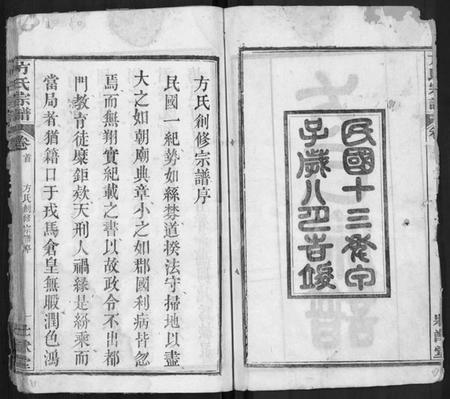 方氏宗譜 卷
民國十三年甲
子歲八月吉竣
方氏創修宗譜序
民國一紀勢如絲棼道揆法守掃地以盡
大之如朝廟典章小之如郡國利病皆忽
焉而無翔實紀載之書以故政令不出都
門教育徒糜鉅欵天刑人禍緣是紛乘而
當局者猶藉口于戎馬倉皇無暇潤色鴻
方氏宗譜 卷首 方氏創修宗譜序